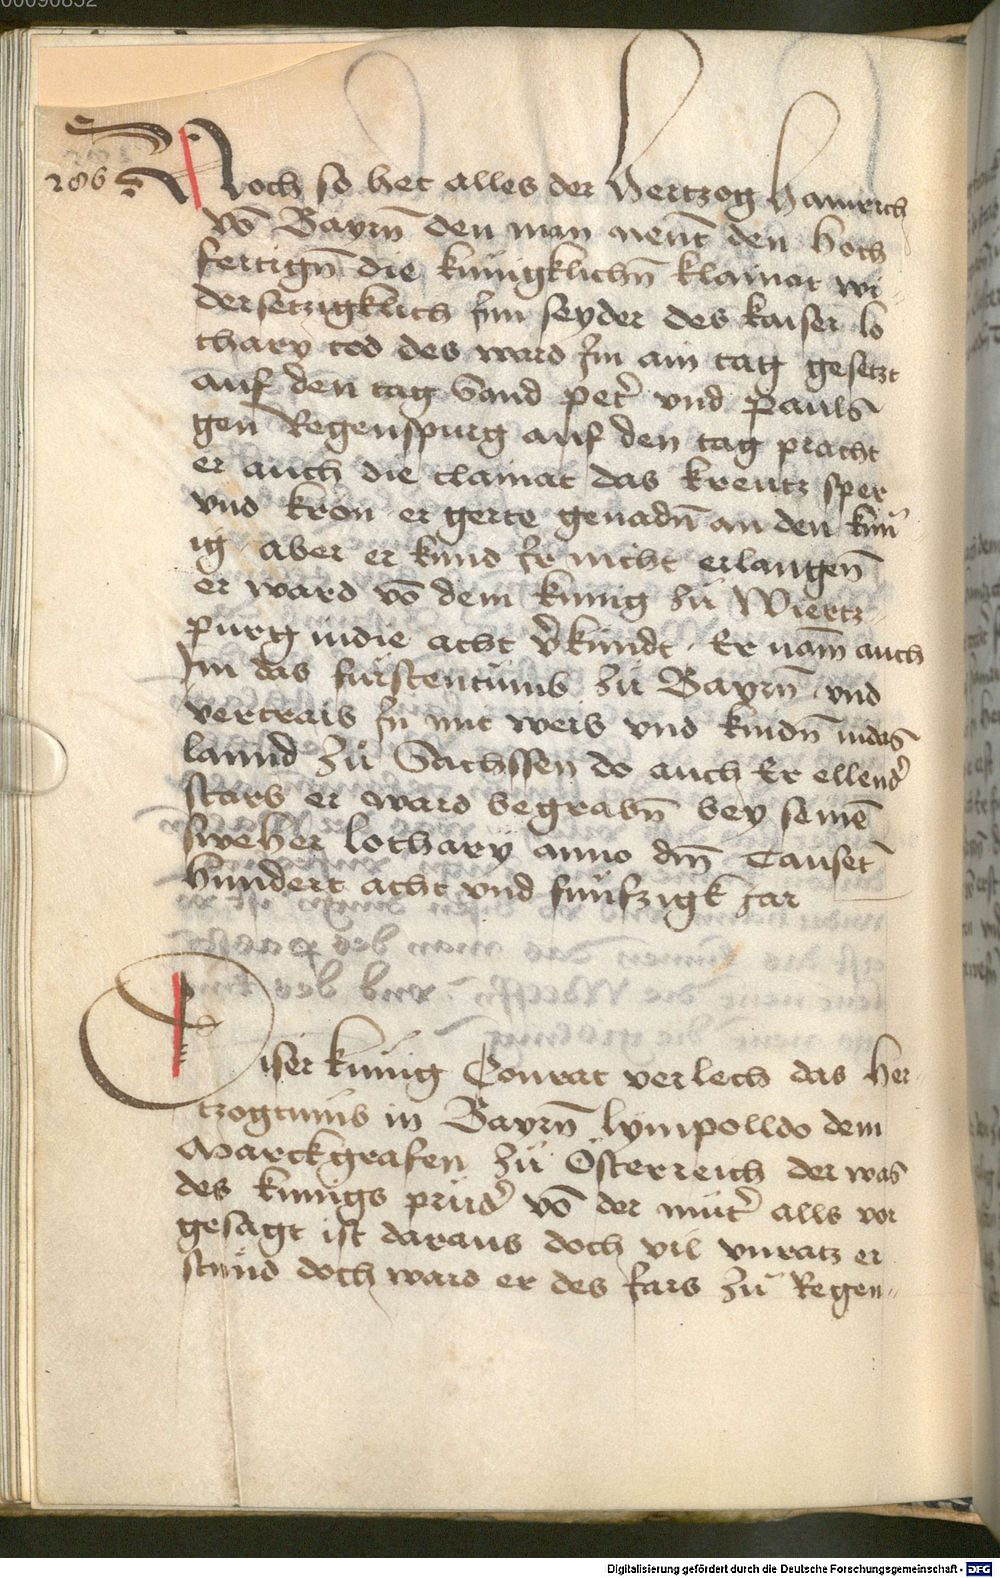 00090852
286
Noch so het alles der Hertzog Hainrich
vō Bayrn̄ den man nent den hoch
fertign̄ die kunigklichn̄ klainat wi-
dersetzigklich Inn seyder des kaiser lo
thary tod des ward Im ain tag gesetzt
auf den tag Sand pet' vnd pauls
gen Regenspurg auf den tag pracht
er auch die clainat das kreutz sper
vnd kron er gerte genadn̄ an den kün
ig aber er kund Ir nicht erlangen̄
er ward vō dem kunig zů Wiertz-
purg indie acht v'kündt · Er nam̄ auch
Im das fürstentumb zů Bayrn̄ vnd
vertraib In mit weib vnd kindn̄ indas
lannd zů Sachssen do auch Er ellend'
starb er ward begrabn̄ bey seinē
sweher lothary anno dm̄ Tauset
hundert acht vnd funfzigk jar
Diser kunig Conrat verlech das her-
tzogtumb in Bayrn̄ lympolldo dem
Marckgrafen zů Österreich der was
des kunigs prüd' vō der mut' alls vor
gesagt ist daraus doch vil vnratz er
stuend doch ward er des fars zů Regen-
Digitalisierung gefördert durch die Deutsche Forschungsgemeinschaft - DFG